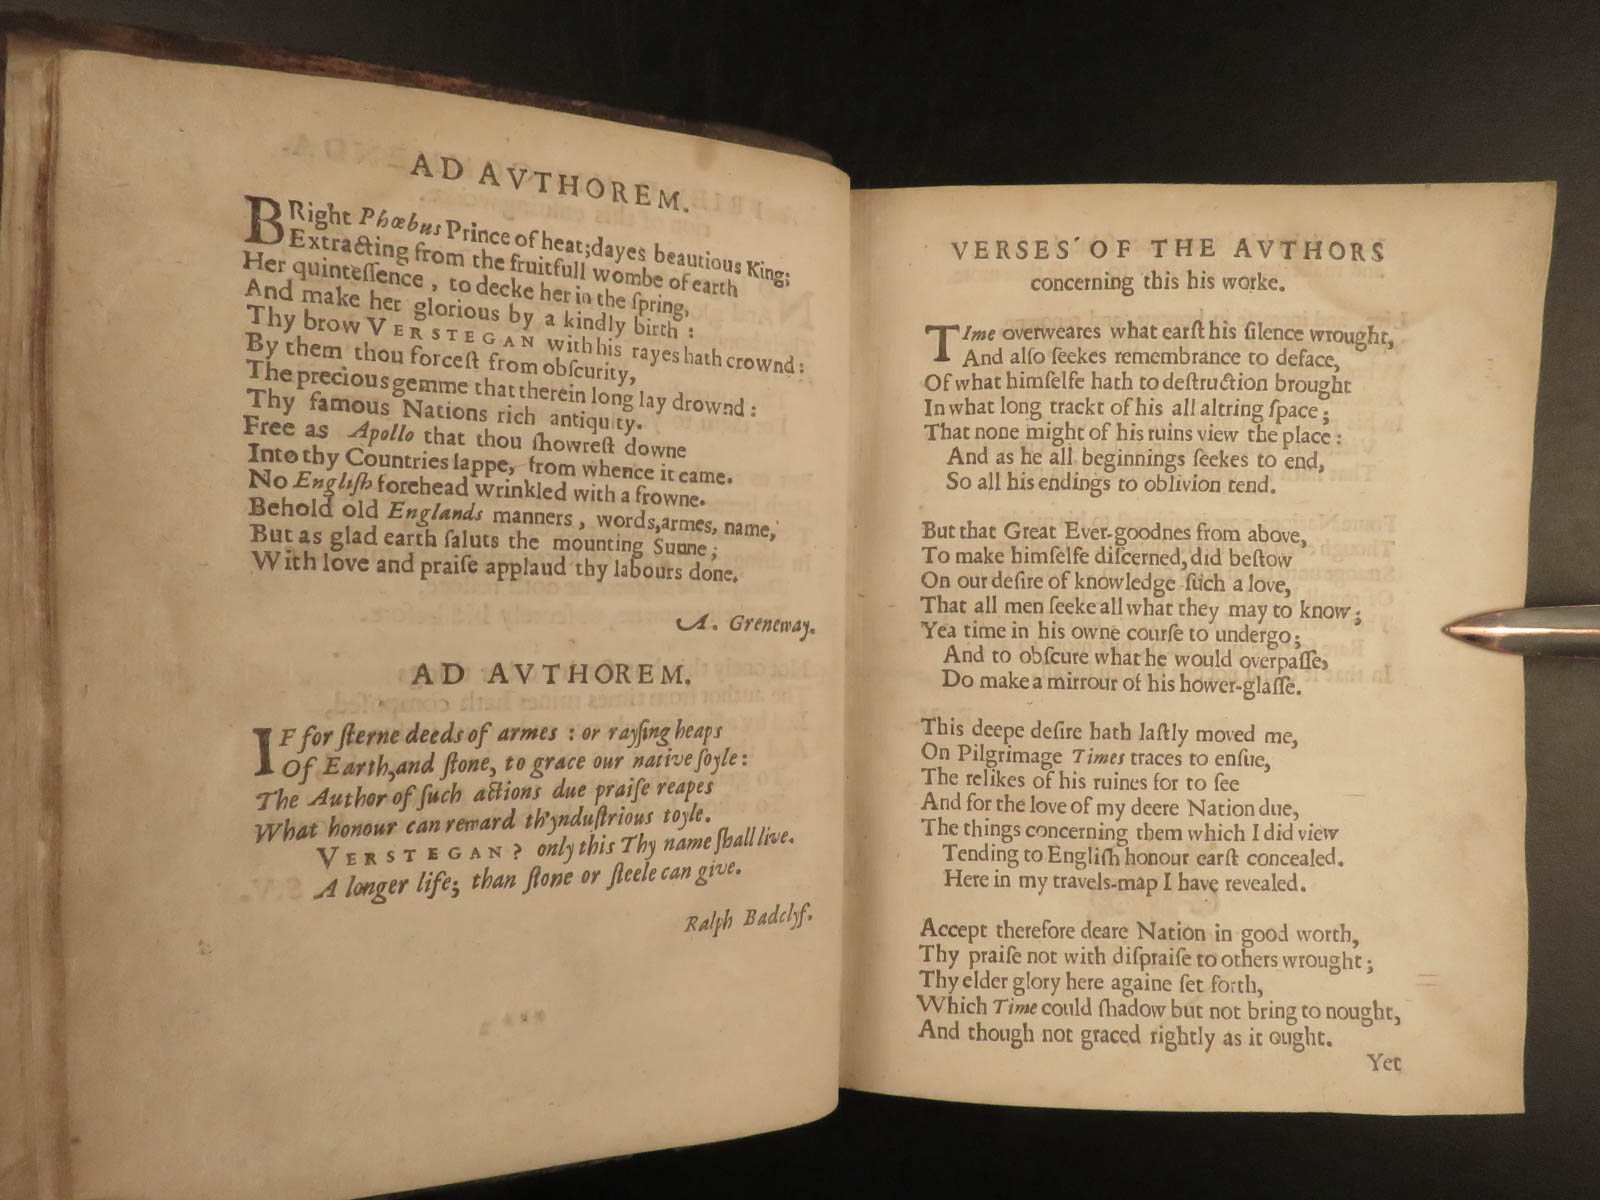 AD AVTHOREM.
BRight Phœbus Prince of heat; dayes beautious King;
Extracting from the fruitfull wombe of earth
Her quinteſſence, to decke her in the ſpring,
And make her glorious by a kindly birth:
Thy brow VERSTEGAN with his rayes hath crownd:
By them thou forceſt from obſcurity,
The precious gemme that therein long lay drownd:
Thy famous Nations rich antiquity.
Free as Apollo that thou ſhowreſt downe
Into thy Countries lappe, from whence it came.
No Engliſh forehead wrinkled with a frowne.
Behold old Englands manners, words, armes, name,
But as glad earth ſaluts the mounting Sunne;
With love and praiſe applaud thy labours done.
A. Greneway.
AD AVTHOREM.
IF for ſterne deeds of armes: or rayſing heaps
Of Earth, and ſtone, to grace our native ſoyle:
The Author of ſuch actions due praiſe reapes
What honour can reward th'ynduſtrious toyle.
VERSTEGAN? only this Thy name ſhall live.
A longer life; than ſtone or ſteele can give.
Ralph Badclyf.
VERSES OF THE AVTHORS
concerning this his worke.
TIme overweares what earſt his ſilence wrought,
And alſo ſeekes remembrance to deface,
Of what himſelfe hath to deſtruction brought
In what long trackt of his all altring ſpace;
That none might of his ruins view the place:
And as he all beginnings ſeekes to end,
So all his endings to oblivion tend.
But that Great Ever-goodnes from above,
To make himſelfe diſcerned, did beſtow
On our deſire of knowledge ſuch a love,
That all men ſeeke all what they may to know;
Yea time in his owne courſe to undergo;
And to obſcure what he would overpaſſe,
Do make a mirrour of his hower-glaſſe.
This deepe deſire hath laſtly moved me,
On Pilgrimage Times traces to enſue,
The relikes of his ruines for to ſee
And for the love of my deere Nation due,
The things concerning them which I did view
Tending to Engliſh honour earſt concealed.
Here in my travels-map I have revealed.
Accept therefore deare Nation in good worth,
Thy praiſe not with diſpraiſe to others wrought;
Thy elder glory here againe ſet forth,
Which Time could ſhadow but not bring to nought,
And though not graced rightly as it ought.
Yet